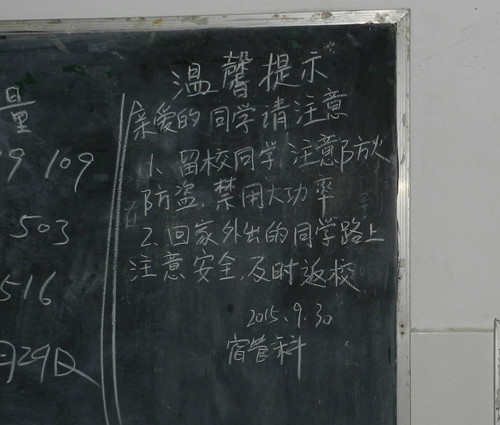 温馨提示
亲爱的同学请注意
1、留校同学,注意防火
防盗,禁用大功率
2、回家外出的同学路上
注意安全,及时返校
2015.9.30
宿管科
量
9 109
503
516
月29日